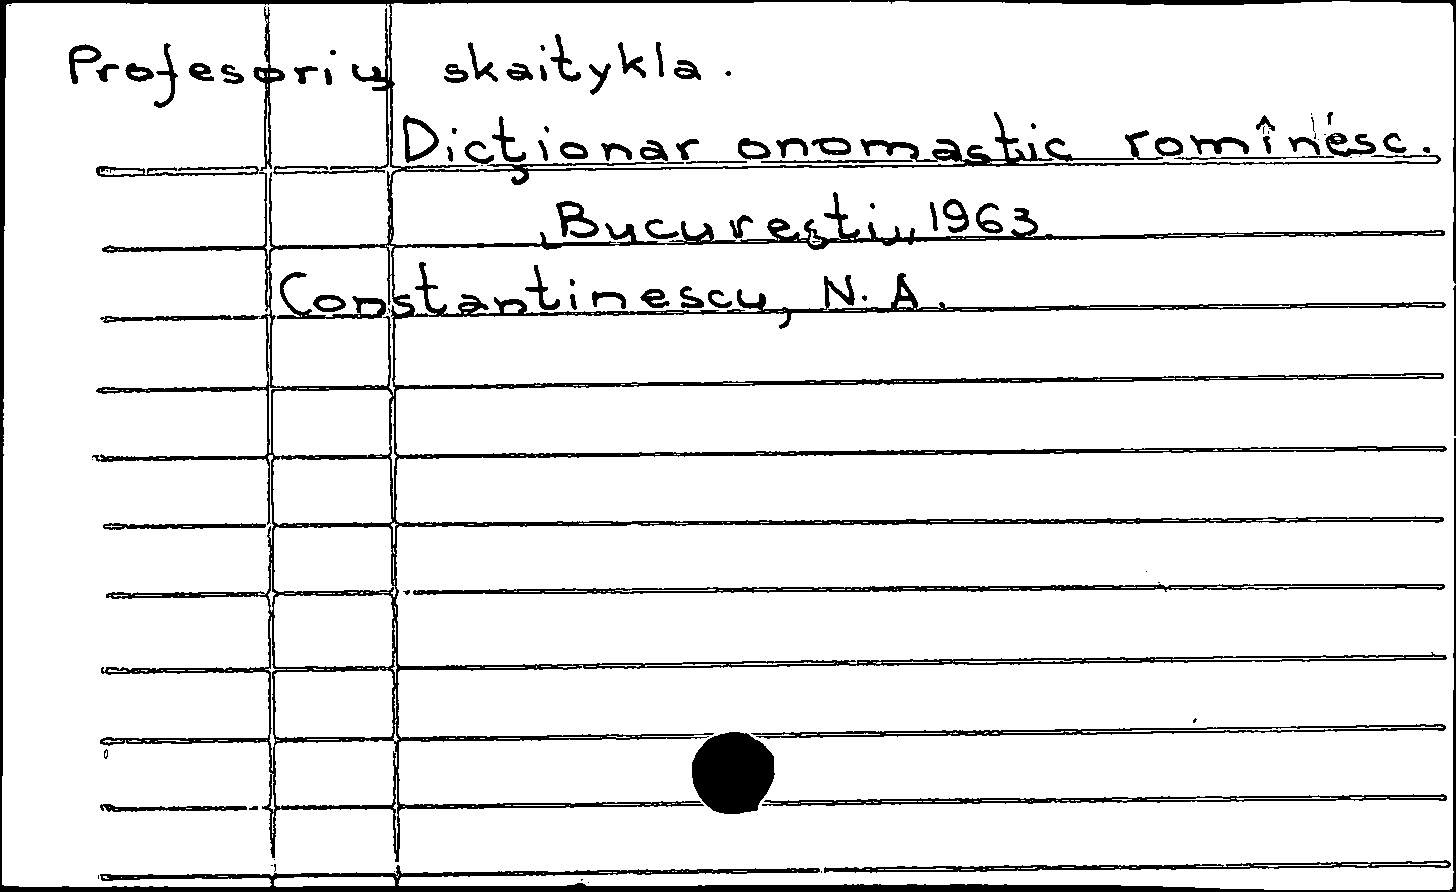 Profesorių skaitykla.
Dicţionar onomastic romînesc.
Bucureşti, 1963
Constantinescu, N. A.